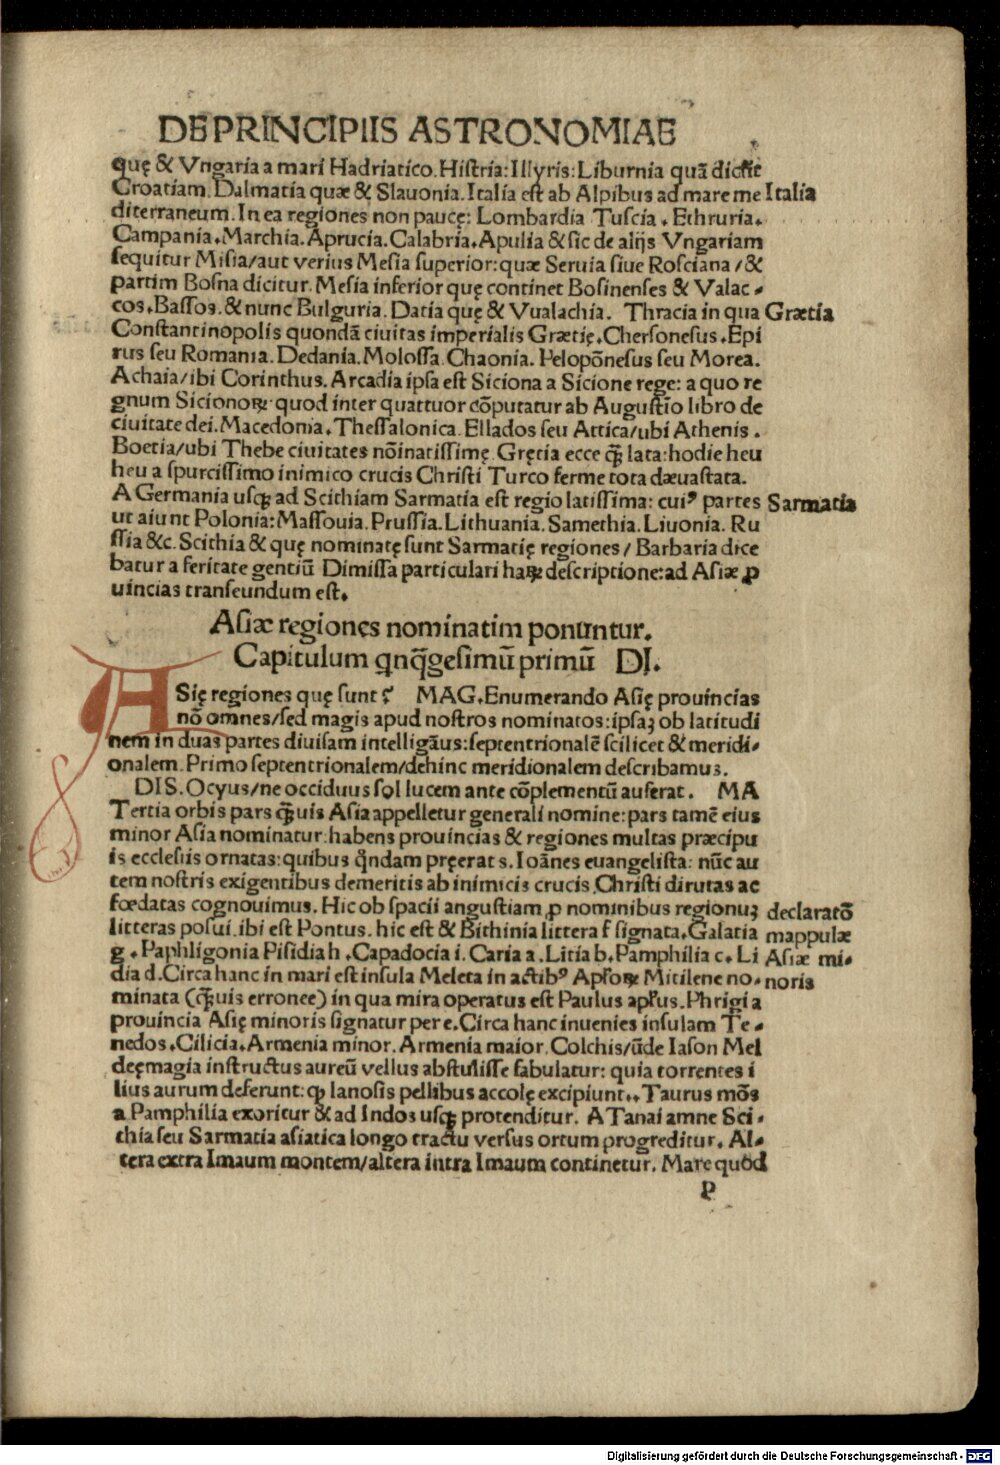 DE PRINCIPIIS ASTRONOMIAE
quę & Vngaria a mari Hadriatico. Histria: Illyris: Liburnia quā dicūt
Croatiam. Dalmatia quæ & Slauonia. Italia est ab Alpibus ad mare me Italia
diterraneum. In ea regiones non paucę: Lombardia Tuscia. Ethruria.
Campania. Marchia. Aprucia. Calabria. Apulia & sic de alijs Vngariam
sequitur Misia/aut verius Mesia superior: quæ Seruia siue Rosciana/&
partim Bosna dicitur. Mesia inferior quę continet Bosinenses & Valac-
cos. Bassos. & nunc Bulguria. Datia quę & Vualachia. Thracia in qua Grætia
Constantinopolis quondā ciuitas imperialis Grætię. Chersonesus. Epi
rus seu Romania. Dedania. Molossa. Chaonia. Pelopōnesus seu Morea.
Achaia/ibi Corinthus. Arcadia ipsa est Siciona a Sicione rege: a quo re
gnum Sicionoꝝ quod inter quattuor cōputatur ab Augustio libro de
ciuitate dei. Macedonia. Thessalonica. Ellados seu Attica/ubi Athenis.
Boetia/ubi Thebe ciuitates nōinatissimę. Gręcia ecce ꝙ̄ lata: hodie heu
heu a spurcissimo inimico crucis Christi Turco ferme tota dæuastata.
A Germania usqꝫ ad Scithiam Sarmatia est regio latissima: cuiꝰ partes Sarmatia
ut aiunt Polonia: Massouia. Prussia. Lithuania. Samethia. Liuonia. Ru
ssia &c. Scithia & quę nominatę sunt Sarmatię regiones/ Barbaria dice
batur a feritate gentiū Dimissa particulari haꝝ descriptione: ad Asiæ ꝓ
uincias transeundum est.
Asiæ regiones nominatim ponuntur.
Capitulum qnq̄gesimū primū DI.
ASię regiones quę sunt? MAG. Enumerando Asię prouincias
nō omnes/sed magis apud nostros nominatos: ipsaꝫ ob latitudi
nem in duas partes diuisam intelligāus: septentrionalē scilicet & meridi-
onalem. Primo septentrionalem/dehinc meridionalem describamus.
DIS. Ocyus/ne occiduus sol lucem ante cōplementū auferat. MA
Tertia orbis pars ꝙ̄uis Asia appelletur generali nomine: pars tamē eius
minor Asia nominatur: habens prouincias & regiones multas præcipu
is ecclesiis ornatas: quibus qndam pręerat s. Ioānes euangelista: nūc au
tem nostris exigentibus demeritis ab inimicis crucis Christi dirutas ac
fœdatas cognouimus. Hic ob spacii angustiam ꝓ nominibus regionuꝫ declaratō
litteras posui. ibi est Pontus. hic est & Bithinia littera f signata. Galatia mappulæ
g. Paphligonia Pisidia h. Capadocia i. Caria a. Litia b. Pamphilia c. Li Asiæ mi-
dia d. Circa hanc in mari est insula Meleta in actibꝰ Apl̄oꝝ Mitilene no- noris
minata (ꝙ̄uis erronee) in qua mira operatus est Paulus apl̄us. Phrigia
prouincia Asię minoris signatur per e. Circa hanc inuenies insulam Te-
nedos. Cilicia. Armenia minor. Armenia maior. Colchis/ūde Iason Mel
deęmagia instructus aureū vellus abstulisse fabulatur: quia torrentes i
lius aurum deferunt: qꝫ lanosis pellibus accolę excipiunt. Taurus mōs
a Pamphilia exoritur & ad Indos usqꝫ protenditur. A Tanai amne Sci-
thia seu Sarmatia asiatica longo tractu versus ortum progreditur. Al-
tera extra Imaum montem/altera intra Imaum continetur. Mare quod
P
Digitalisierung gefördert durch die Deutsche Forschungsgemeinschaft - DFG